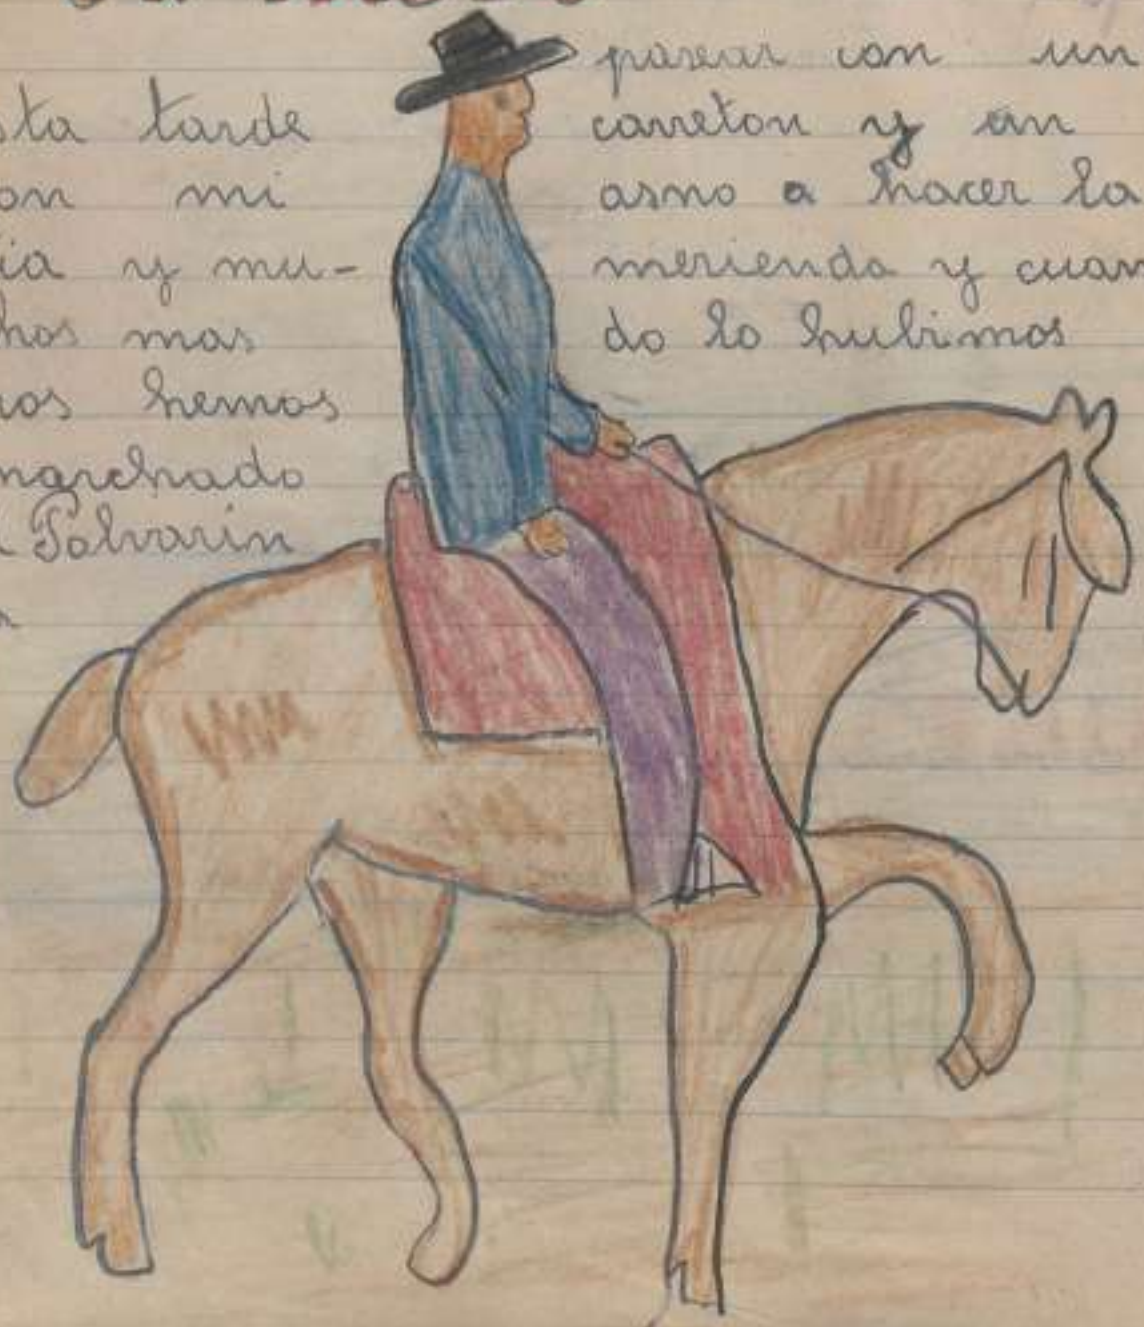 sta tarde
on mi
ia y mu-
hos mas
nos hemos
marchado
a Polvarin
a
pasear con un
carreton y un
asno a hacer la
merienda y cuan
do lo hubimos